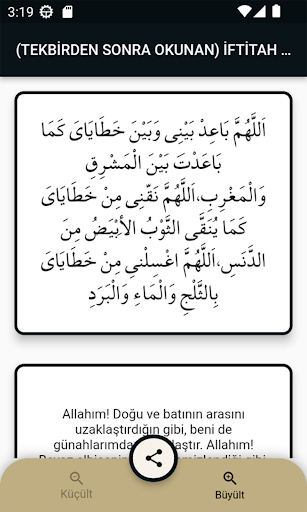 3:19
(TEKBİRDEN SONRA OKUNAN) İFTİTAH ...
اَللَّهُمَّ بَاعِدْ بَيْنِى وَبَيْنَ خَطَايَاىَ كَمَا
بَاعَدْتَ بَيْنَ الْمَشْرِقِ
وَالْمَغْرِبِ،اَللَّهُمَّ نَقِّنِى مِنْ خَطَايَاىَ
كَمَا يُنَقَّى الثَّوْبُ الأَبْيَضُ مِنَ
الدَّنَسِ،اَللَّهُمَّ اغْسِلْنِى مِنْ خَطَايَاىَ
بِالثَّلْجِ وَالْمَاءِ وَالْبَرَدِ
Allahım! Doğu ve batının arasını
uzaklaştırdığın gibi, beni de
Allahım!
Küçült
Büyült